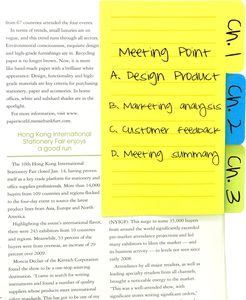 from 67 countries attended the four events.
In terms of trends, small luxuries are on
vogue, and this trend runs through all sectors.
Environmental consciousness, exquisite design
and high-grade furnishings are in. Recycling
paper is no longer brown. Now, it is more
like hand-made paper with a brilliant white
appearance. Design, functionality and high-
grade materials are key criteria for purchasing
stationery, paper and accessories. In home
offices, white and subdued shades are in the
spotlight.
For more information, visit www.
paperworld.messefrankfurt.com.
Hong Kong International
Stationery Fair enjoys
a good run
The 10th Hong Kong International
Stationery Fair closed Jan. 14, having proven
itself as a key trade platform for stationery and
office supplies professionals. More than 16,000
buyers from 109 countries and regions flocked
to the four-day event to source the latest
product lines from Asia, Europe and North
America.
Highlighting the event's international flavor,
there were 243 exhibitors from 10 countries
and regions. Meanwhile, 53 percent of the
buyers were from overseas, an increase of 29
percent over 2009.
Monica Decker of the Kentish Corporation
found the show to be a one-stop sourcing
destination. "I came in search for writing
instruments and found a number of quality
suppliers whose products meet international
safety standards. This has got to be one of my
Meeting Point
A. Design Product
B. Marketing analysis
C. Customer feedback
D. Meeting summary
Ch. 1
Ch. 2
Ch. 3
(NYIGF). This surge to some 35,000 buyers
from around the world significantly exceeded
pre-market attendance projections and led
many exhibitors to liken the market — and
its business activity — to levels not seen since
early 2008.
Attendance by all major retailers, as well as
leading specialty retailers from all channels,
brought a noticeable energy to the market.
"This was a well-attended show, with
significant stores writing significant orders,"